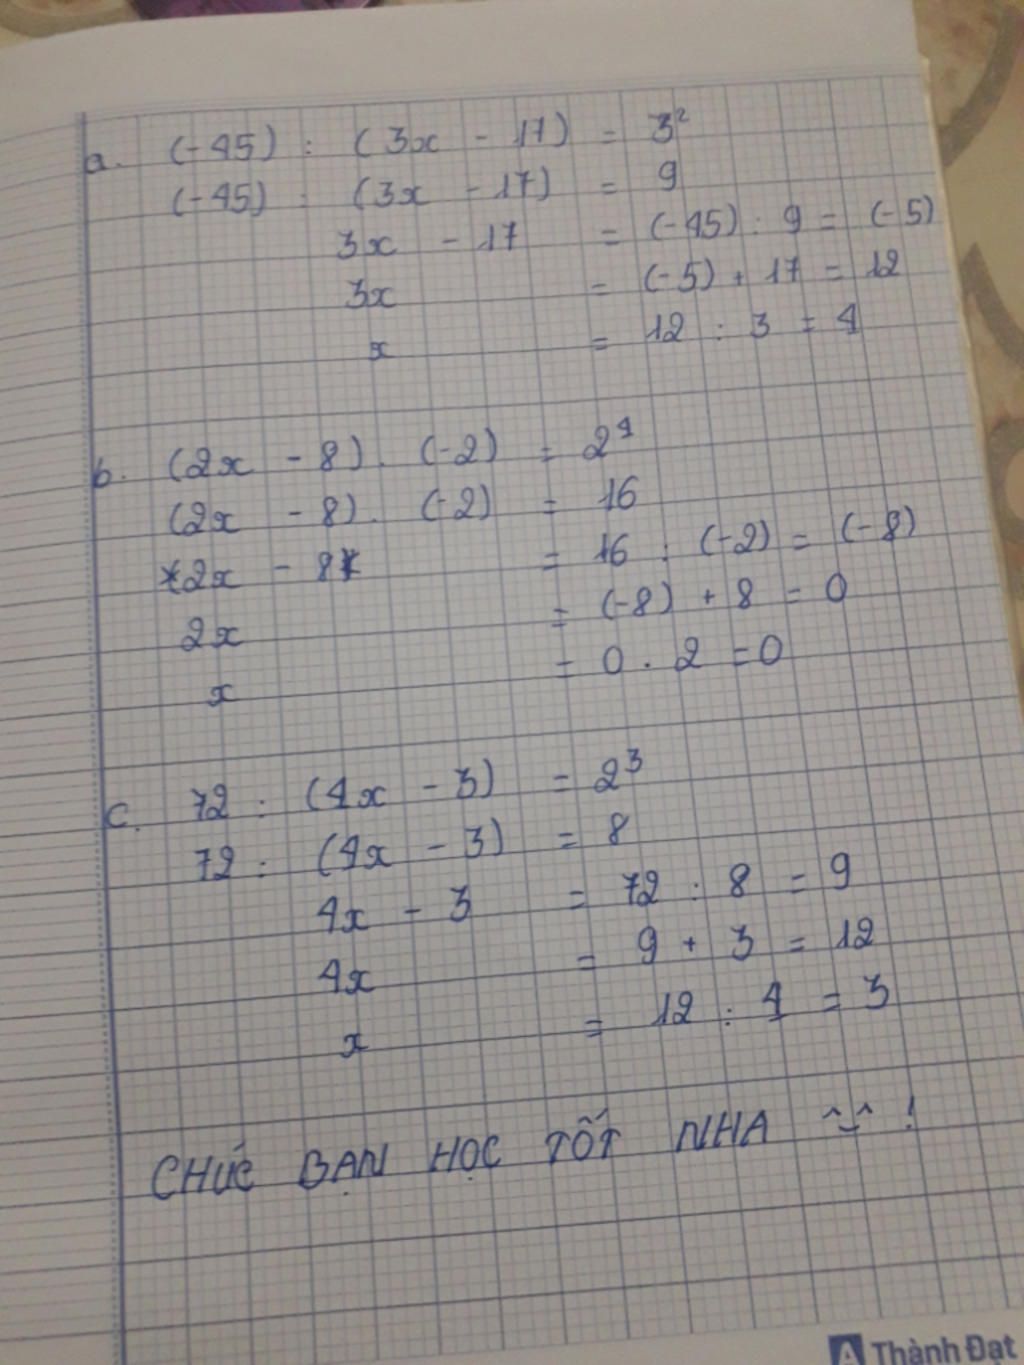 a. (-45) : (3x - 17) = 3²
(-45) : (3x - 17) = 9
3x - 17 = (-45) : 9 = (-5)
3x = (-5) + 17 = 12
x = 12 : 3 = 4
b. (2x - 8) . (-2) = 2⁴
(2x - 8) . (-2) = 16
2x - 8 = 16 : (-2) = (-8)
2x = (-8) + 8 = 0
x = 0 . 2 = 0
c. 72 : (4x - 3) = 2³
72 : (4x - 3) = 8
4x - 3 = 72 : 8 = 9
4x = 9 + 3 = 12
x = 12 : 4 = 3
CHÚC BẠN HỌC TỐT NHA ^_^ !
Thành Đạt